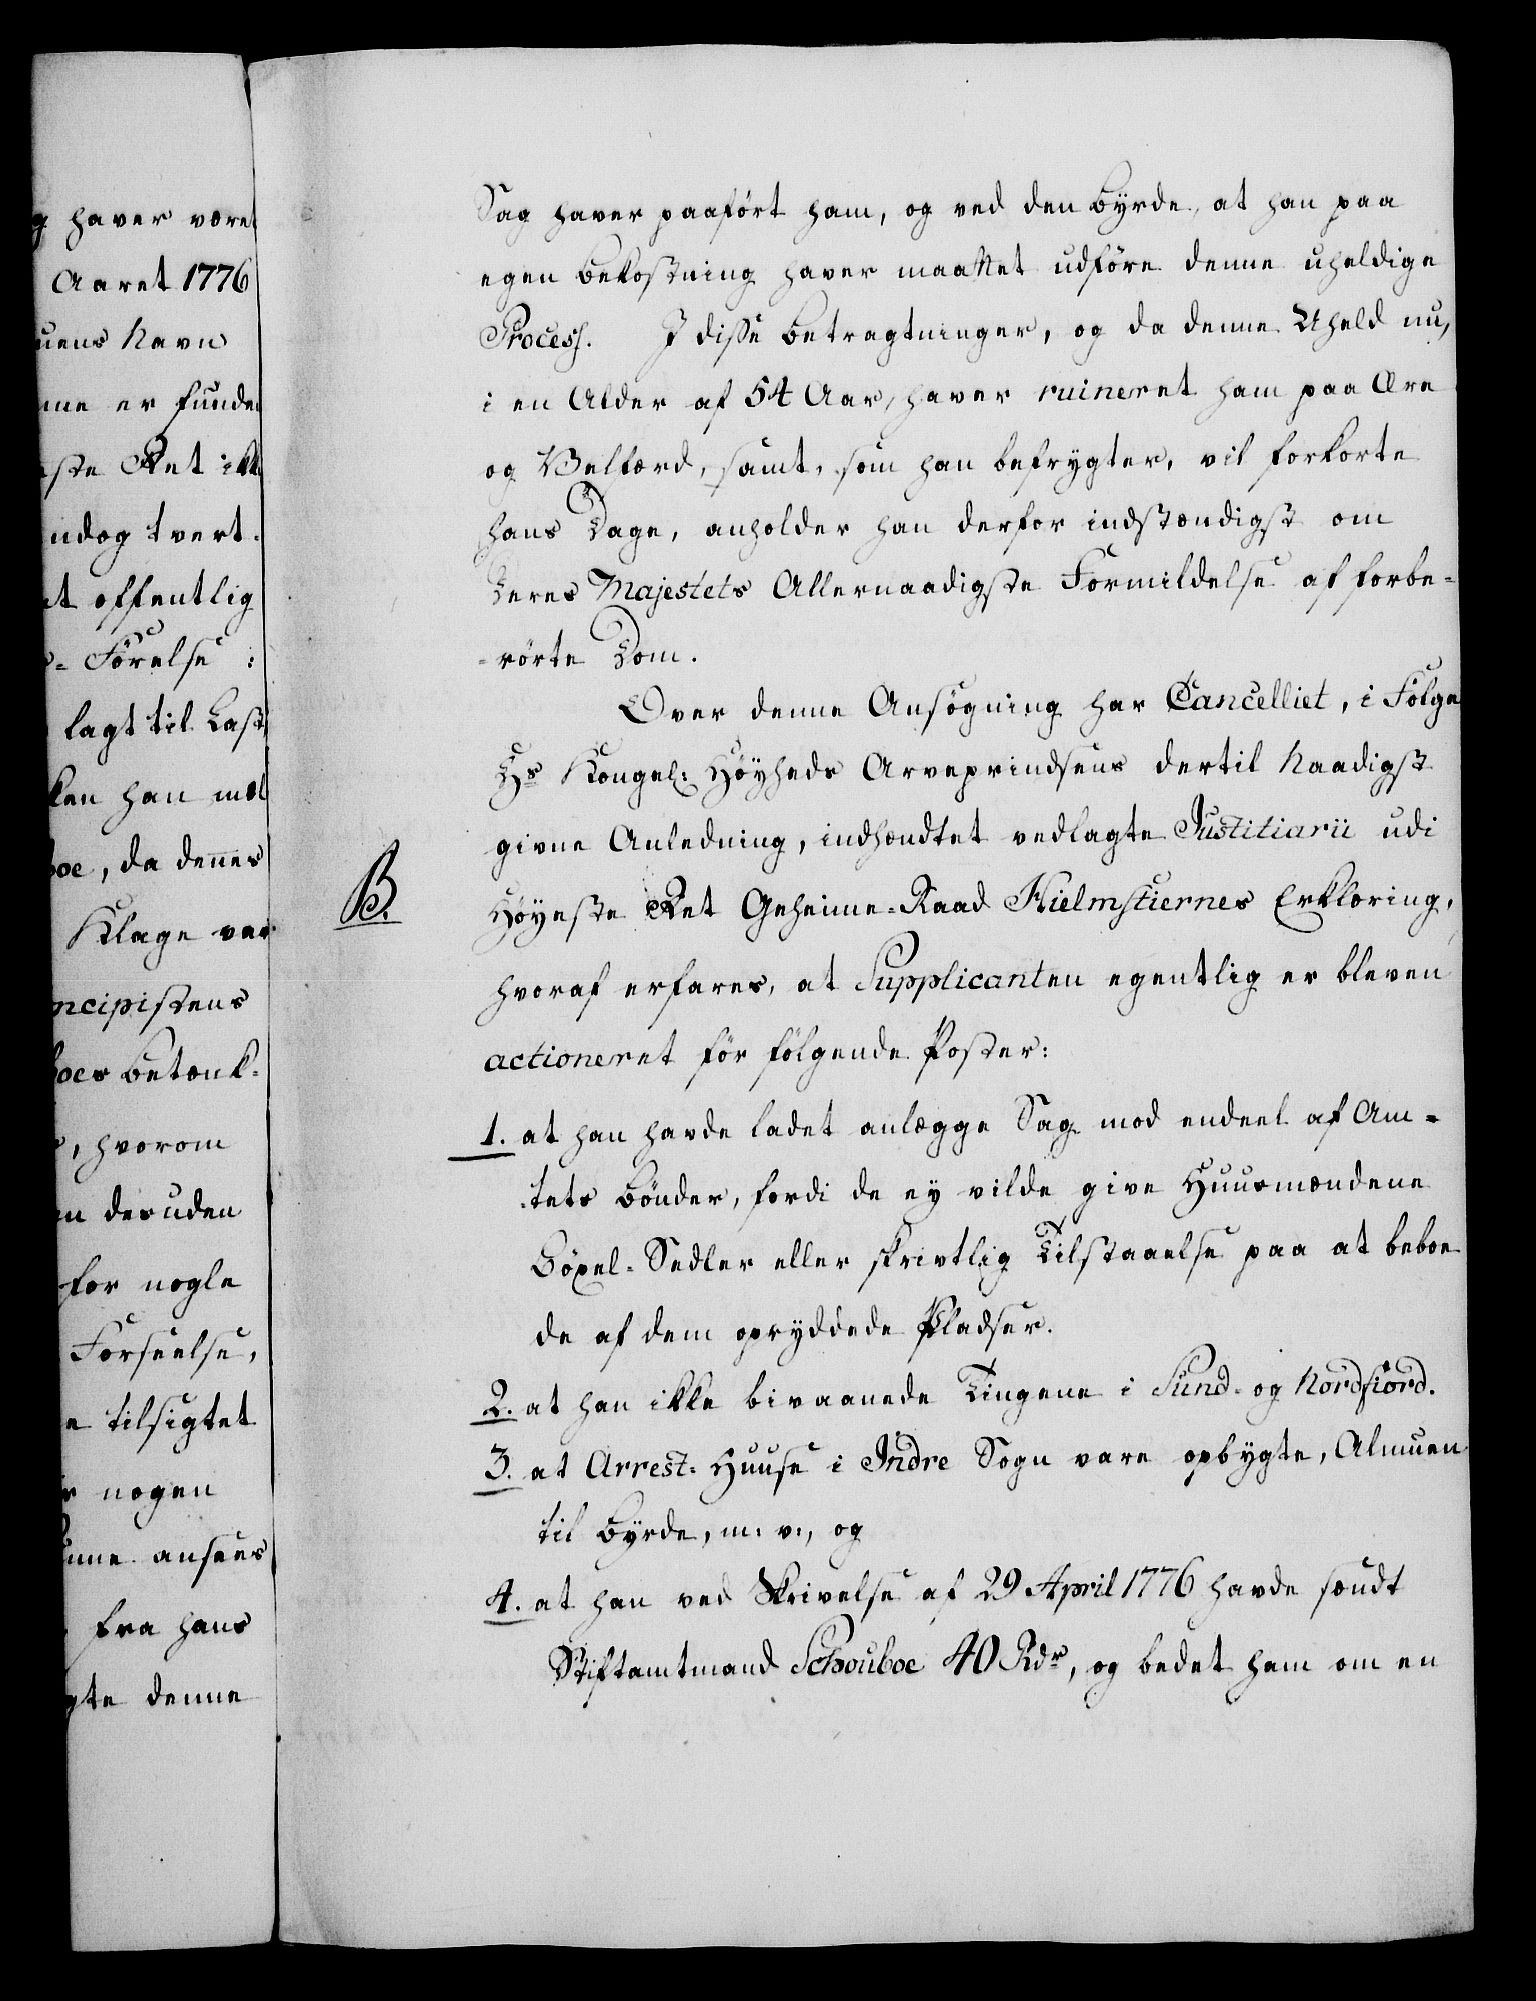 g haver være
Aaret 1776
uens Navn
nne er funde
ste Ret ikk
ndog tvert
et offentlig
- Førelse :
lagt til Last
ken han mæl
boe, da dennes
Klage var
ncipistens
boes Betænk-
, hvorom
en desuden
for nogle
Forseelse,
e tilsigtet
r nogen
unne ansees
fra hans
gte denne
Sag haver paaført ham, og ved den Byrde, at han paa
egen Bekostning haver maattet udføre denne uheldige
Process. I disse Betragtninger, og da denne Uheld nu,
i en Alder af 54 Aar, haver ruineret ham paa Ære
og Velfærd, samt, som han befrygter, vil forkorte
hans Dage, anholder han derfor indstændigst om
Deres Majestets Allernaadigste Formildelse af forbe-
-rørte Dom.
Over denne Ansøgning har Cancelliet, i Følge
Hs Kongel: Høyheds Arveprindsens dertil Naadigst
givne Anledning, indhændtet vedlagte Justitiarii udi
B.
Høyeste Ret Geheime-Raad Hielmstiernes Erklæring,
hvoraf erfares, at Supplicanten egentlig er bleven
actioneret før følgende Poster:
1. at han havde ladet anlægge Sag mod endeel af Am-
-tets Bønder, fordi de ey vilde give Huusmændene
Böxel-Sedler eller skrivtlig Tilstaaelse paa at beboe
de af dem opryddede Pladser.
2. at han ikke bivaanede Tingene i Sund- og Nordfiord.
3. at Arrest-Huuse i Indre Sogn vare opbygte, Almuen
til Byrde, m: v:, og
4. at han ved Skrivelse af 29 April 1776 havde sændt
Stiftamtmand Schouboe 40 Rdr, og bedet ham om en